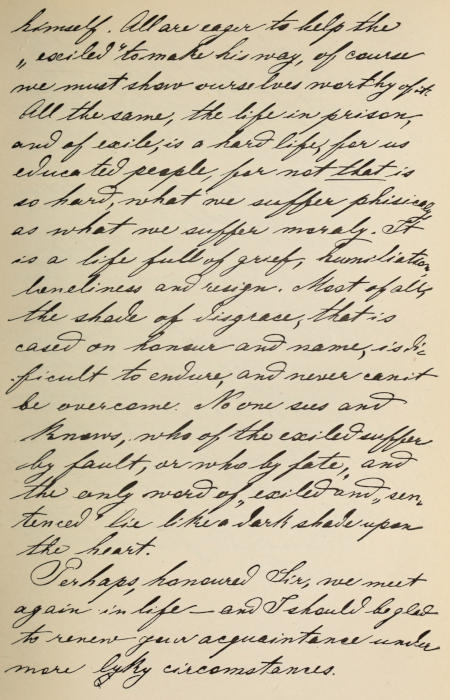 himself. All are eager to help the
„exiled" to make his way, of course
we must show ourselves worthy of it.
All the same, the life in prison,
and of exile, is a hard life, for us
educated people, for not that is
so hard, what we suffer phisicaly
as what we suffer moraly. It
is a life full of grief, humiliation,
loneliness and resign. Most of all,
the shade of disgrace, that is
cased on honour and name, is di-
ficult to endure, and never can it
be overcome. No one sees and
knows, who of the exiled suffer
by fault, or who by fate, and
the only word of „exiled and „sen-
tenced" lie like a dark shade upon
the heart.
Perhaps, honoured Sir, we meet
again in life — and I should be glad
to renew your acquaintance under
more lyky circomstances.